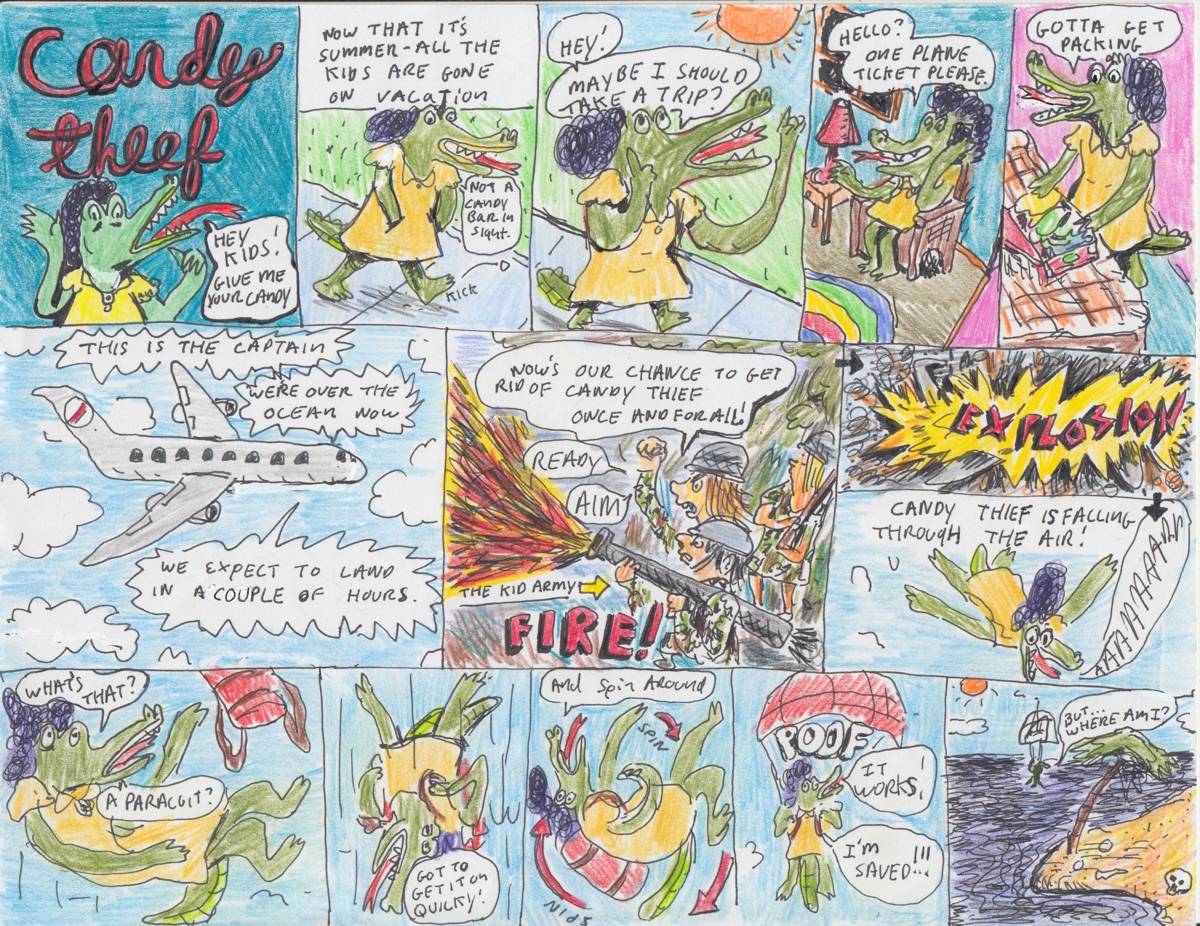 Candy
theef
HEY
KIDS!
GIVE ME
YOUR CANDY
NOW THAT IT'S
SUMMER - ALL THE
KIDS ARE GONE
ON VACATION
NOT A
CANDY
BAR IN
SIGHT.
KICK
HEY!
MAYBE I SHOULD
TAKE A TRIP?
HELLO?
ONE PLANE
TICKET PLEASE.
GOTTA GET
PACKING
THIS IS THE CAPTAIN
WERE OVER THE
OCEAN NOW
WE EXPECT TO LAND
IN A COUPLE OF HOURS.
NOW'S OUR CHANCE TO GET
RID OF CANDY THIEF
ONCE AND FOR ALL!
READY
AIM
THE KID ARMY
FIRE!
EXPLOSION
CANDY THIEF IS FALLING
THROUGH THE AIR!
AAAAAAAAAA
WHAT'S
THAT?
A PARACUIT?
GOT TO
GET IT ON
QUICKY!
And Spin Around
SPIN
SPIN
POOF
IT
WORKS!
I'M
SAVED...!!!
BUT...
WHERE AM I?